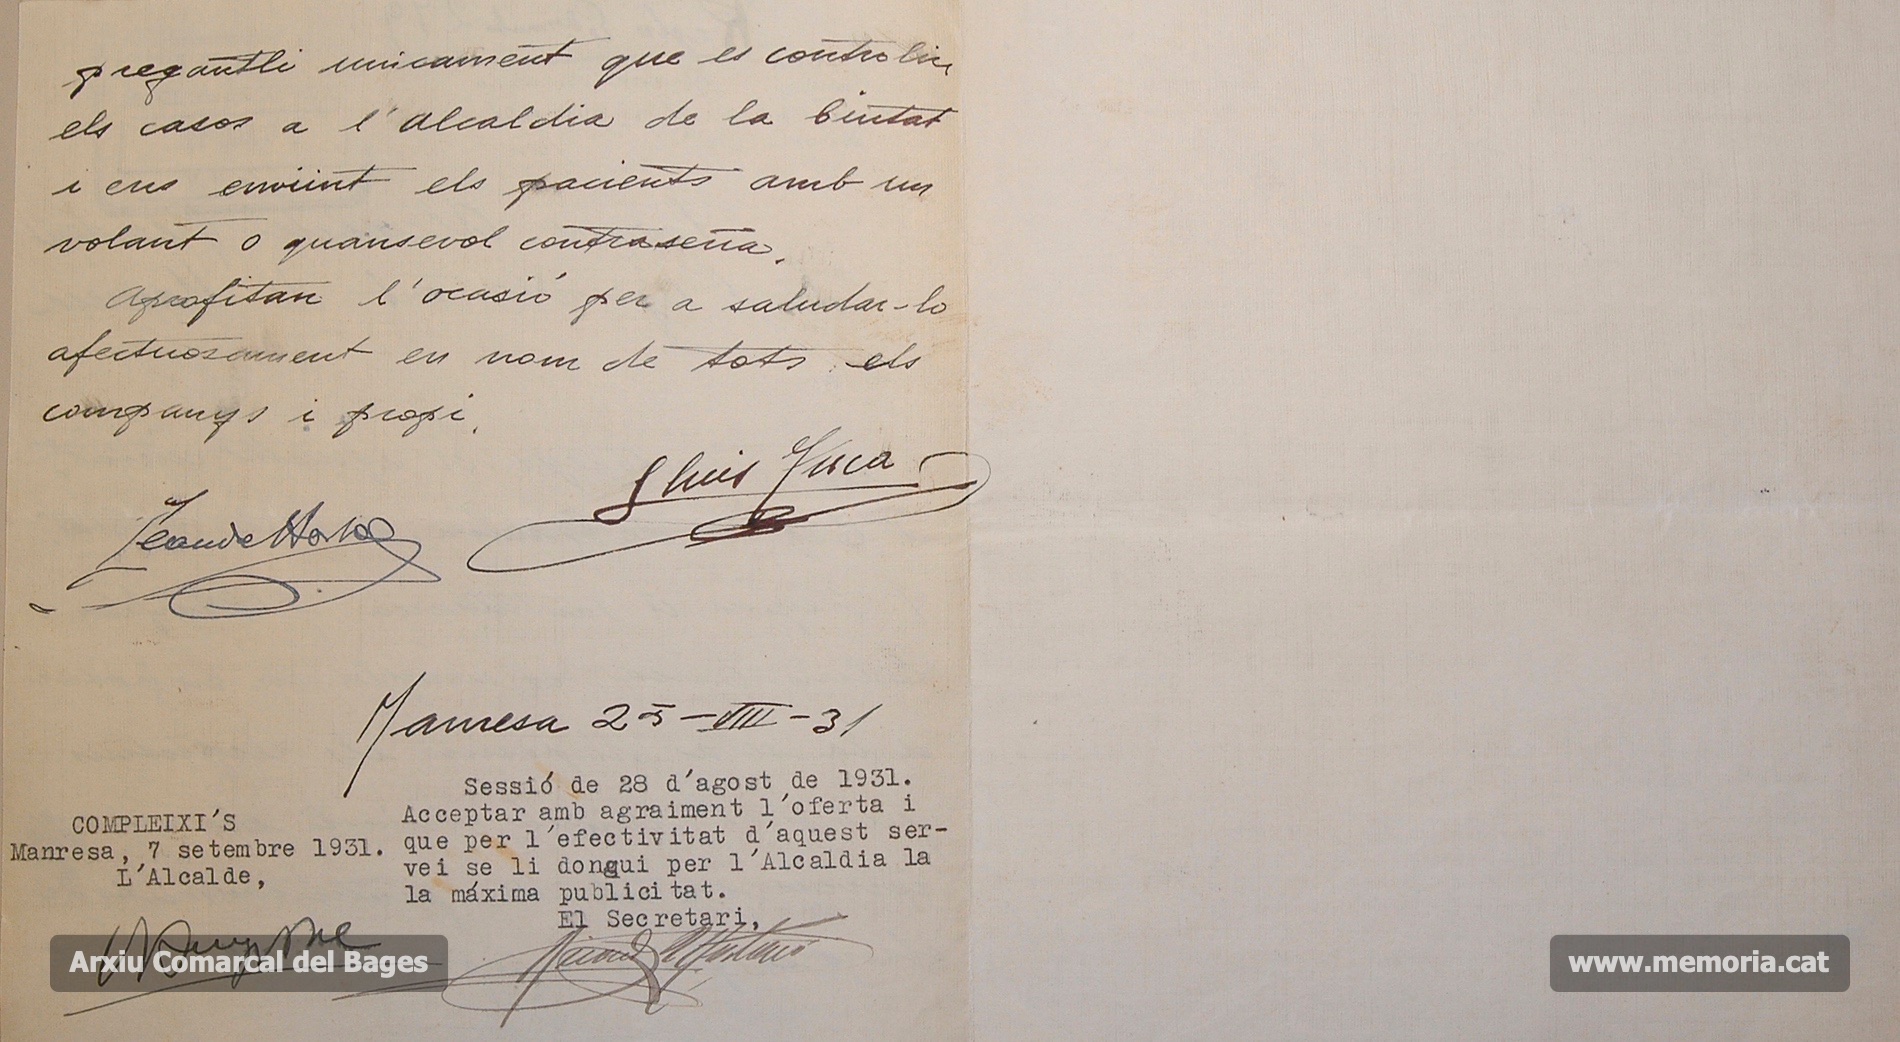 pregantli unicament que es controlin
els casos a l'alcaldia de la Ciutat
i ens enviint els pacients amb un
volant o quansevol contraseña.
Aprofitan l'ocasió per a saludar-lo
afectuosament en nom de tots els
companys i propi.
Lluis
Manresa 25-VIII-31
Sessió de 28 d'agost de 1931.
Acceptar amb agraiment l'oferta i
que per l'efectivitat d'aquest ser-
vei se li dongui per l'Alcaldia la
la máxima publicitat.
El Secretari,
COMPLEIXI'S
Manresa, 7 setembre 1931.
L'Alcalde,
Arxiu Comarcal del Bages
www.memoria.cat